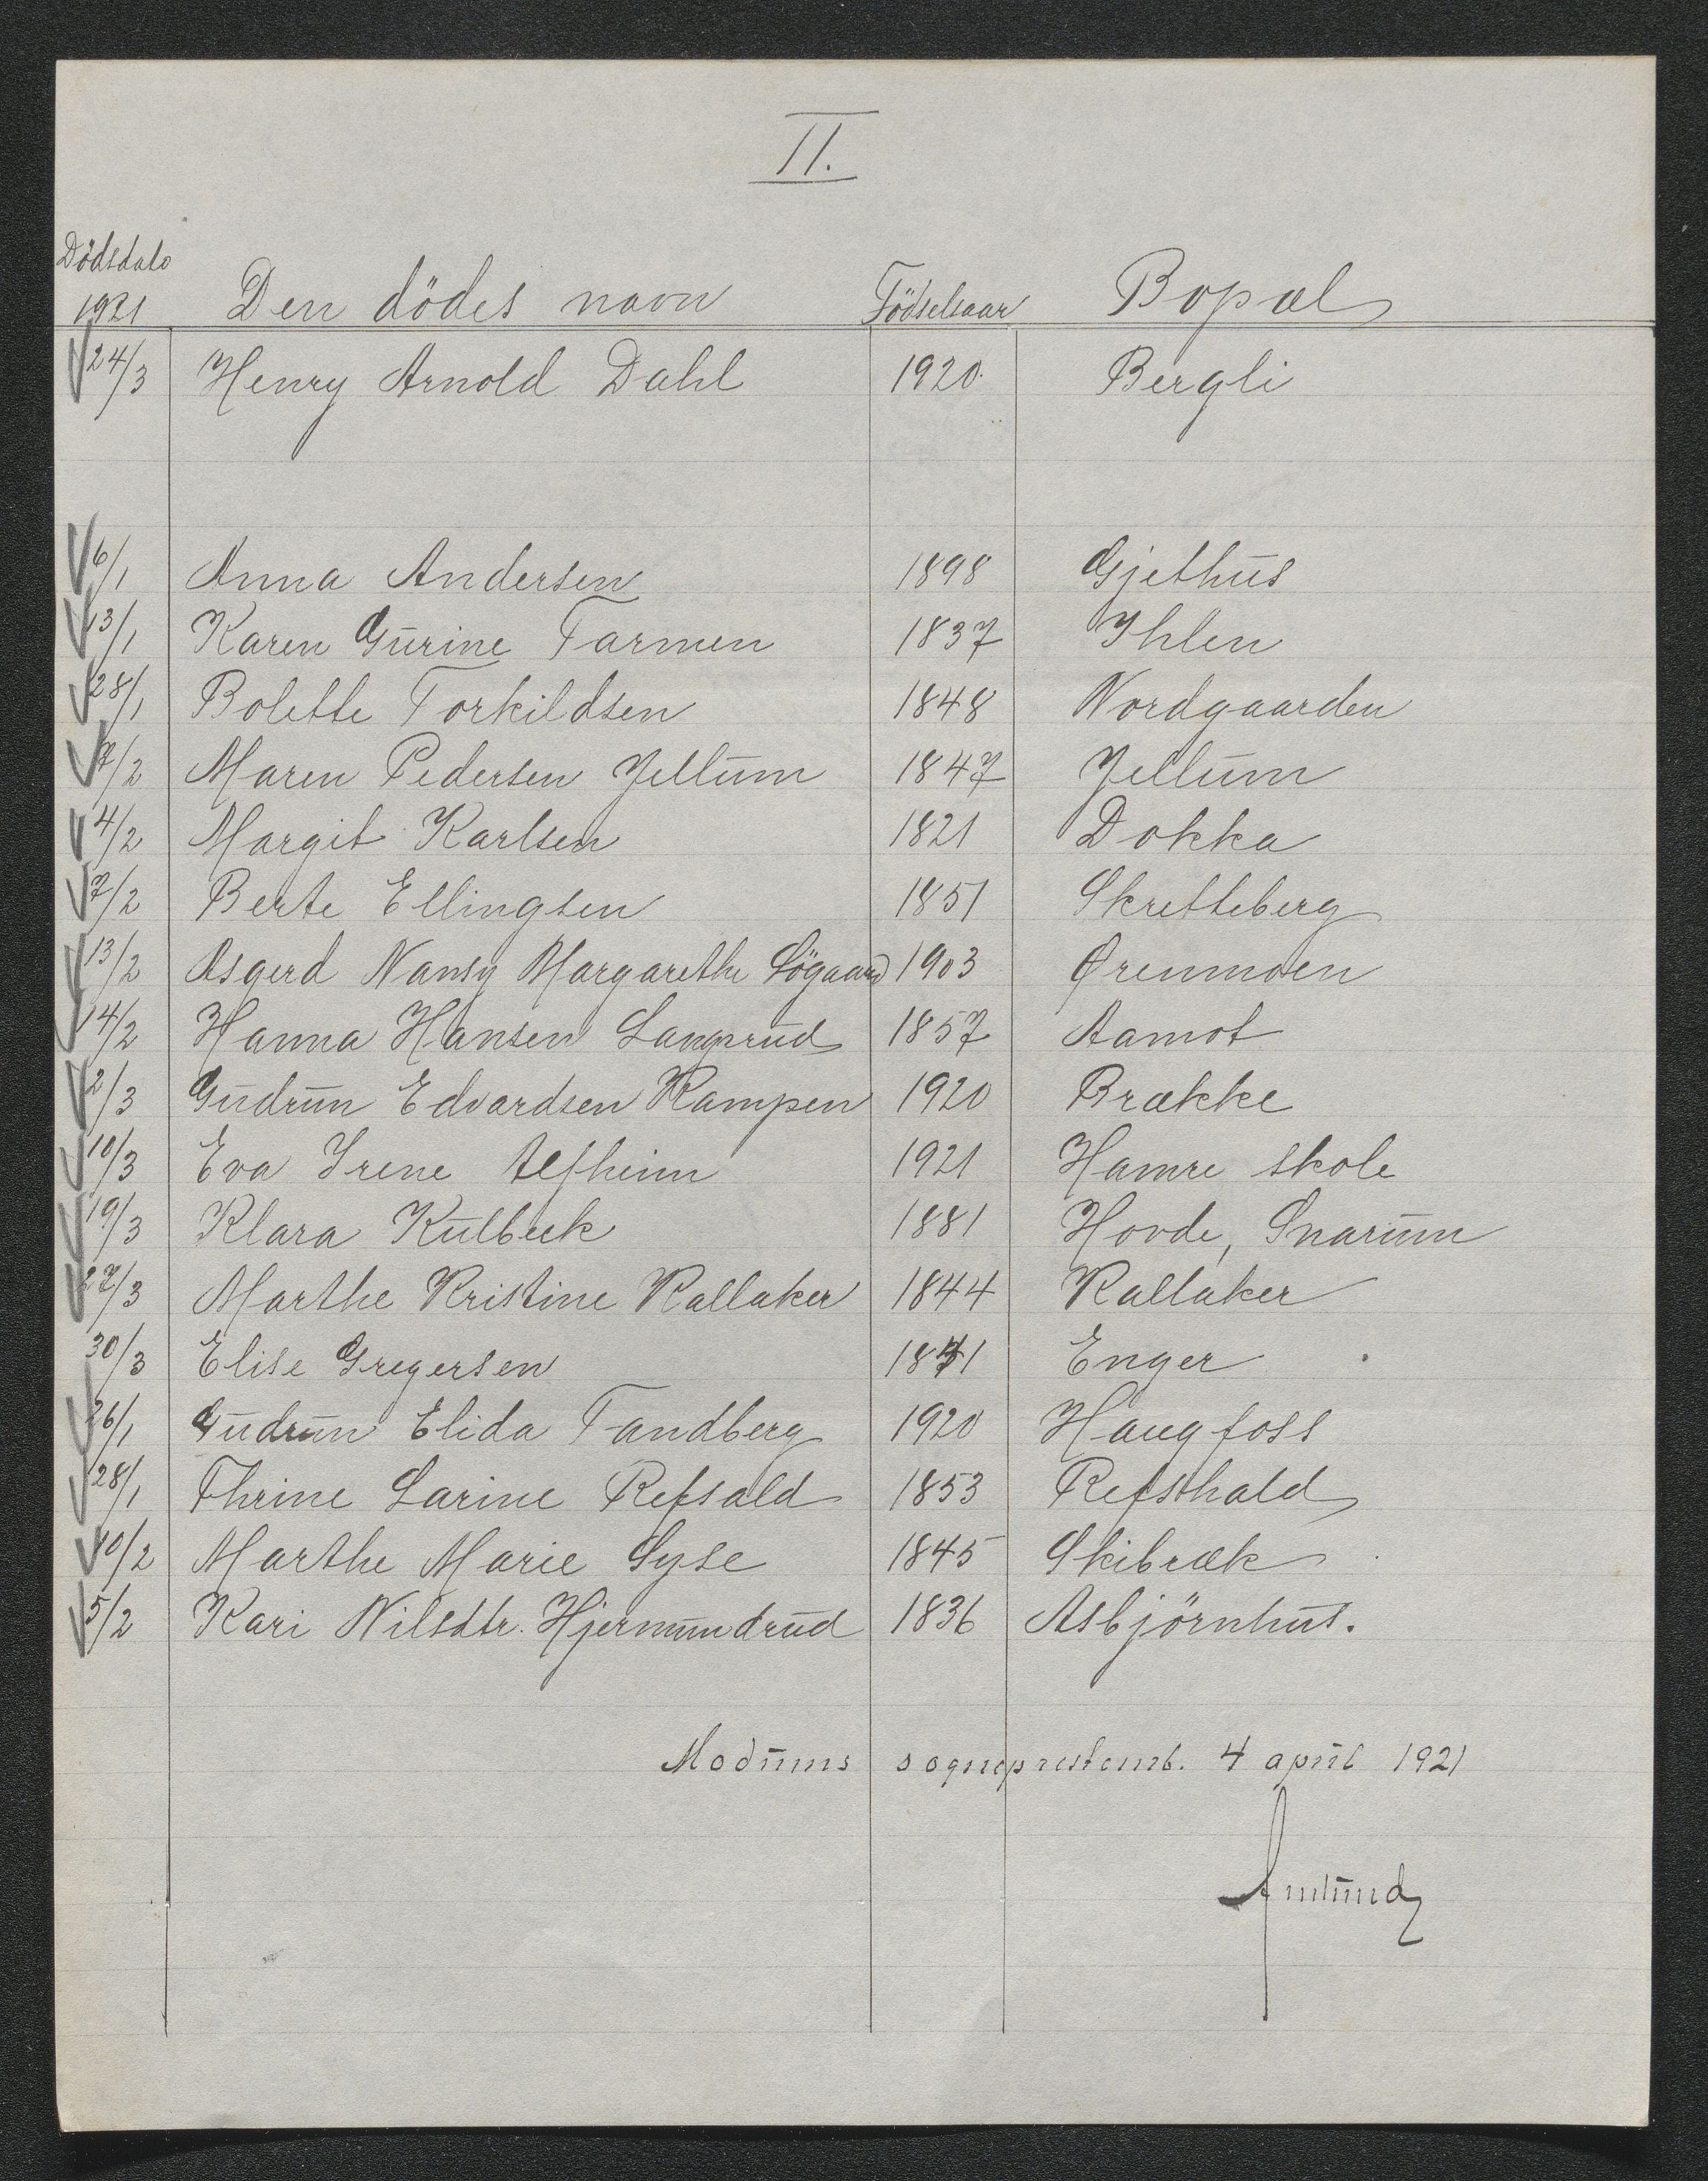 II.
Dödsdato
1921 Den dödes navn Födselsaar Bopæl
24/3 Henry Arnold Dahl 1920. Bergli
6/1 Anna Andersen 1898 Gjethus
13/1 Karen Gurine Farmen 1837 Ihlen
28/1 Bolette Torkildsen 1848 Nordgaarden
7/2 Maren Pedersen Jellum 1847 Jellum
4/2 Margit Karlsen 1821 Dokka
7/2 Berte Ellingsen 1851 Skretteberg
13/2 Asgerd Nansy Margarethe Sögaard 1903 Ørenmoen
14/2 Hanna Hansen Langrud 1857 Aamot
2/3 Gudrun Edvardsen Kampen 1920 Brække
10/3 Eva Irene Alfheim 1921 Hamre skole
19/3 Klara Kulbeck 1881 Hovde, Snarum
27/3 Marthe Kristine Kallaker 1844 Kallaker
30/3 Elise Gregersen Enger
26/1 Gudrun Elida Tandberg 1920 Haugfoss
28/1 Thrine Larine Refsald 1853 Refsthald
10/2 Marthe Marie Syse 1845 Skibræk
5/2 Kari Nilsdtr. Hjermundrud 1836 Asbjörnhus.
Modums sogneprestemb. 4 april 1921